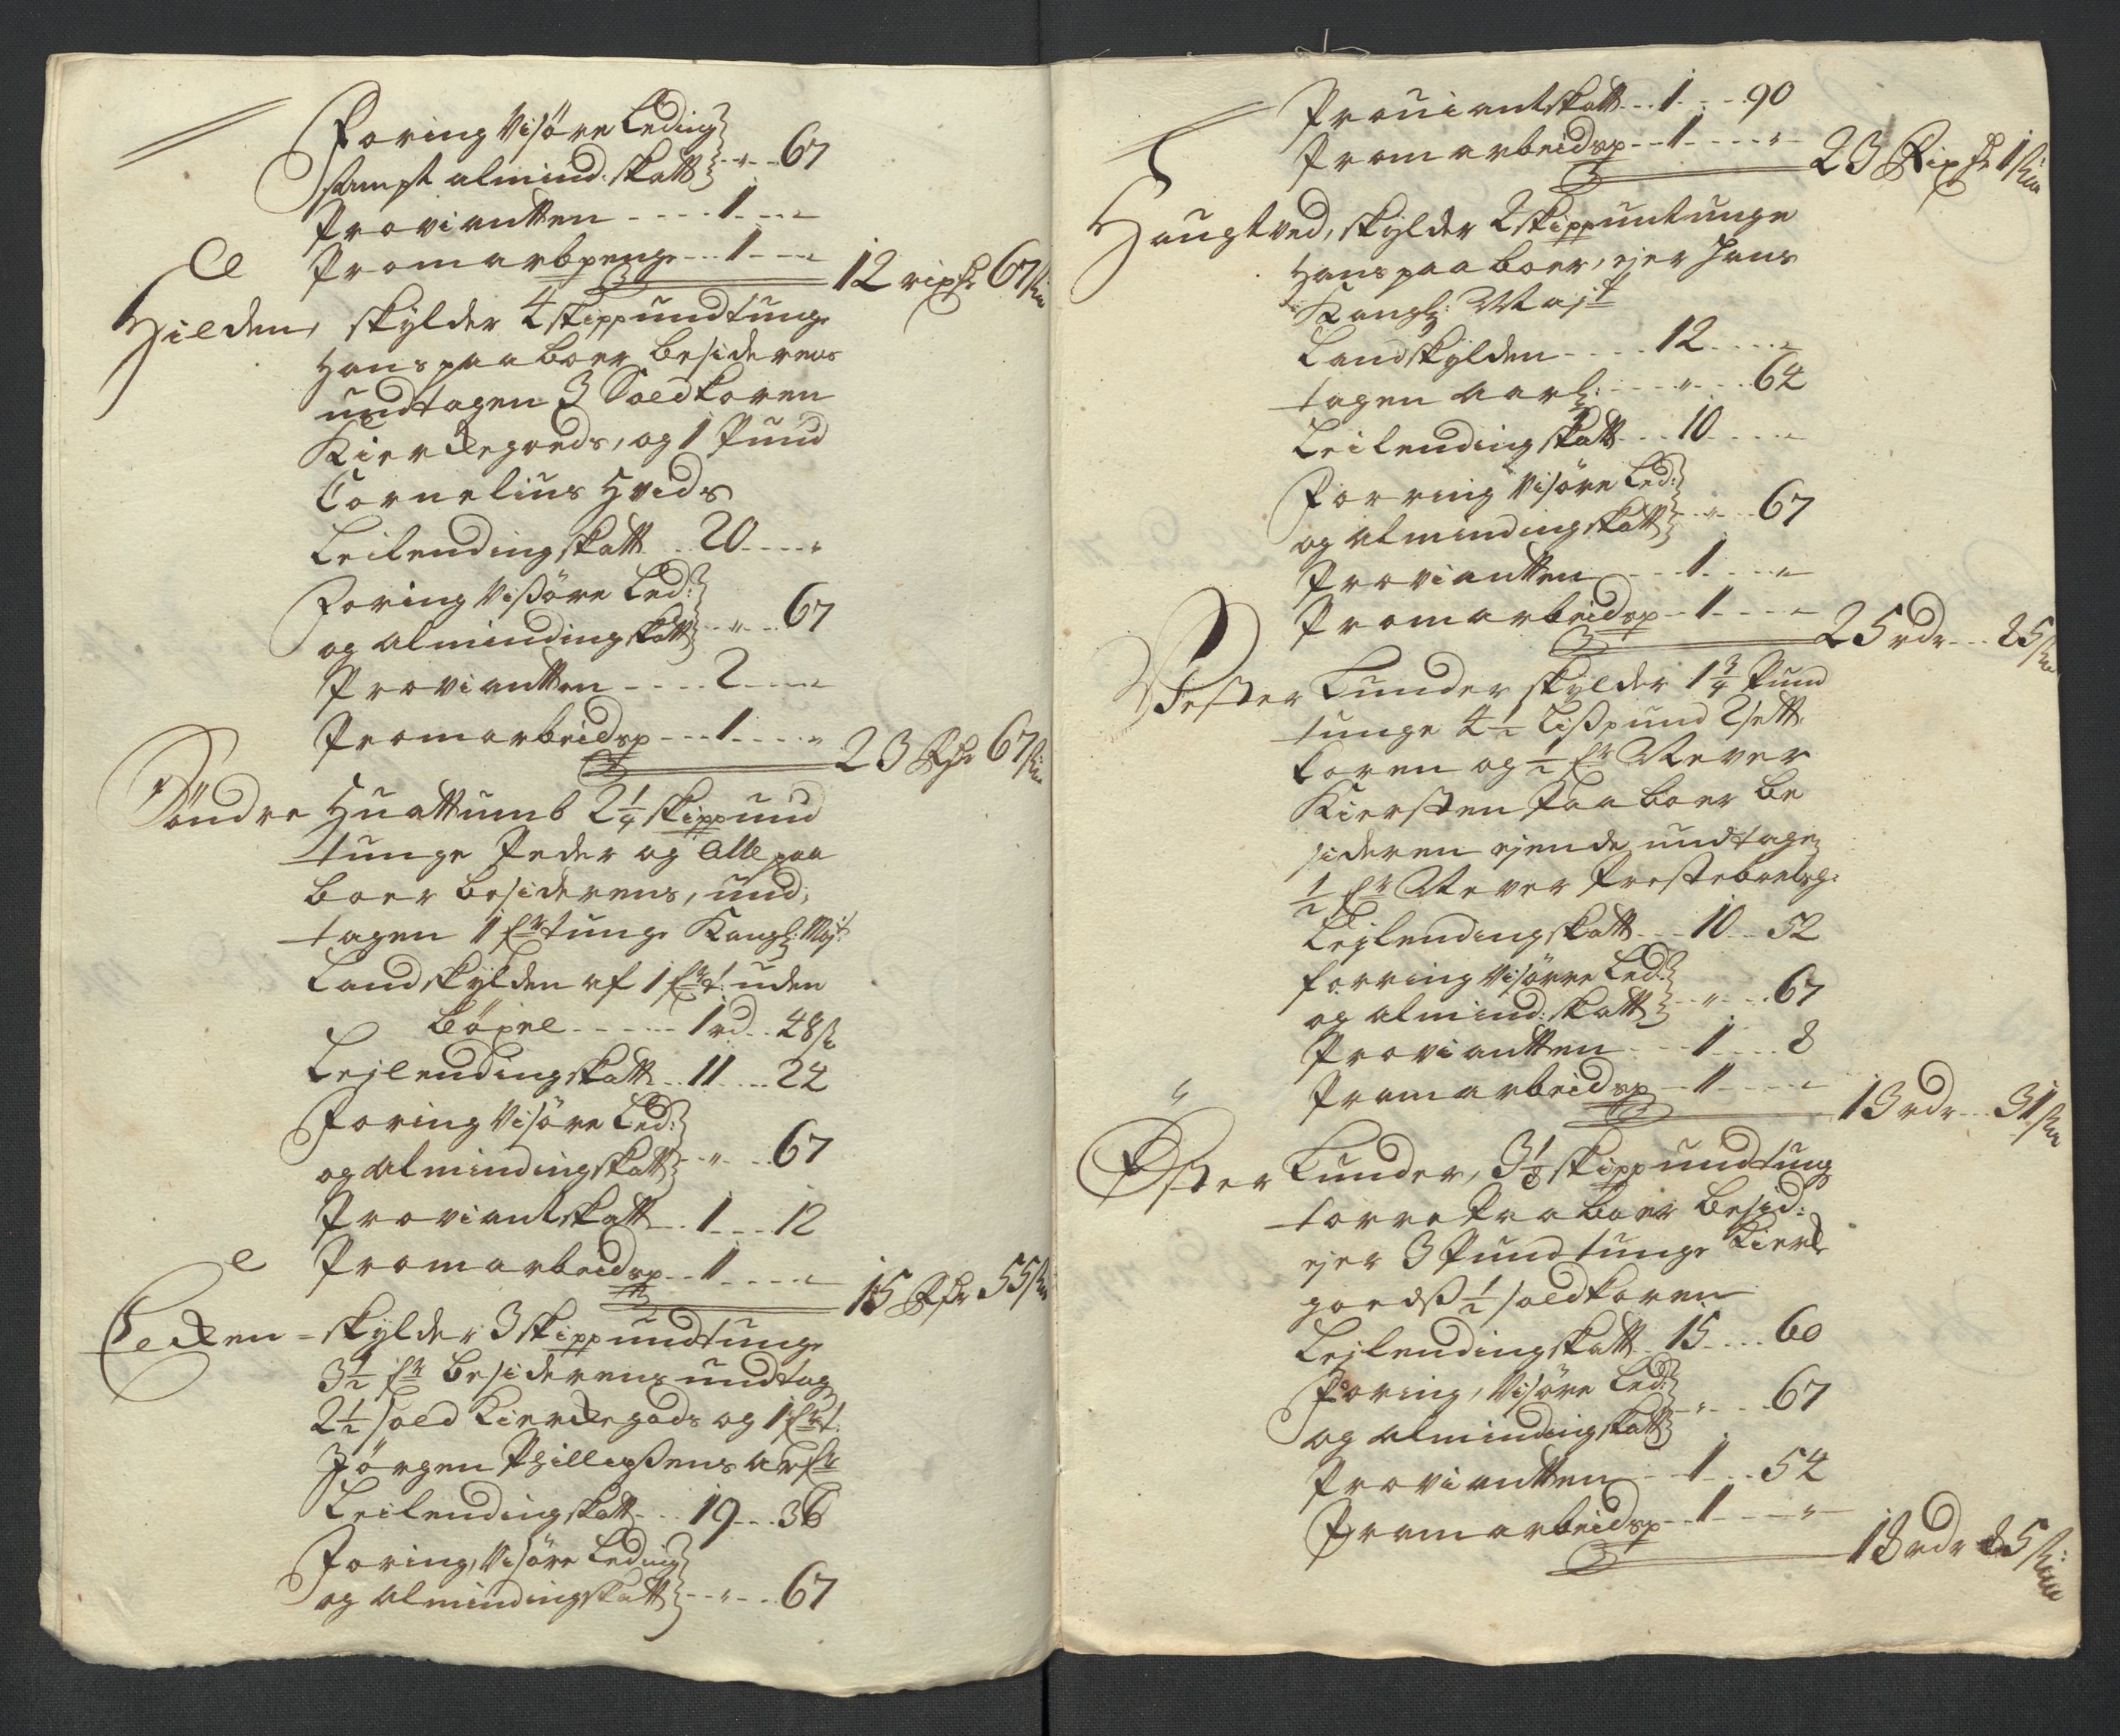 Foring Visøre Leding
sampt almind: skatt - - " - - 67
Provianten - - - - 1 - - "
Fromarbpenge - - 1 - - "
12 rixdr 67 s
Hilden, skylder 4 skippundtunge
Hans paaboer besiderens
undtagen 3 Soldkoren
Kierkegoeds, og 1 Pund
Cornelius Hvids
Leilendingskatt - - 20 - - - "
Foring Vissøre Led:
og almindingskatt - - " - - 67
Provianten - - - - 2 - - "
Fromarbeidsp - - - 1 - - - "
23 Rdr 67 s
Søndre Huattumb 2 1/4 skippund
tunge Peder og Olle paa
boer besiderens, und,
tagen 1 frtunge Kongl: Mayt:
Landskylden af 1 frt: uden
bøxel - - - - - 1 rd - 48 s
Lejlendingskatt - - 11 - - - 24
Foring Visøre Led:
og almindingskatt - - " - - 67
Proviantskatt - - 1 - - 12
Fromarbeidsp - - 1 - - - "
15 Rdr 55 s
Lecken = skylder 3 skippundtunge
3 1/2 fr besiderens undtag
2 1/2 sold Kierkegods og 1 frt:
Jørgen Phillipsens arfr
Leilendingskatt - - - 19 - - - 36
Foring, Visøre Leding
og almindingskatt - - " - - 67
Prouiantskatt - - 1 - - - 90
Fromarbeidsp - - 1 - - - - "
23 Rixdr 1 s
Haugtved, skylder 2 skippuntunge
Hans paaboer, ejer Hans
Kongl: Mayt
Landskylden - - - - 12 - - - "
tagen aarl: - - - - " - - - 64
Leilendingskatt - - - 10 - - - "
Forring Visøre Led:
og almindingskatt - - " - - 67
Provianten - - - 1 - - - "
Fromarbeidsp - - 1 - - - "
25 rdr - - 25 s
Vester Kunder skylder 1 3/4 Pund
tunge 4 1/2 Lispund 2 sett:
koren og 1/2 fr Rever
Kiersten Paaboer be
sideren ejende undtagen
1/2 fr Rever Prestebolsg:
Lejlendingskatt - - - 10 - - 52
forring Visørre Led:
og almind: skatt - - " - - - 67
Provianten - - - 1 - - - 8
Fromarbeidsp - - 1 - - - "
13 rdr - - 31 s
Øster Kunder, 3 1/8 skippundtung
torre Paaboer besid:
ejer 3 Pundtunge Kierk
goeds 1/2 soldkoren
Lejlendingskatt - - 15 - - - 60
Foring, Visøre Led:
og almindingskatt - - " - - - 67
Provianten - - 1 - - - 54
Fromarbeidsp - - 1 - - - "
18 rdr 85 s